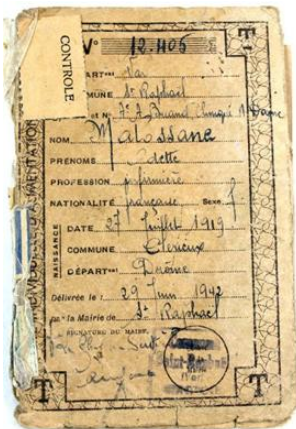 CONTROLE
N° 12.405
ART^ent Var
MUNE St Raphaël
et N°
NOM Malossane
PRÉNOMS Odette
PROFESSION infirmière
NATIONALITÉ française Sexe f
NAISSANCE
DATE 27 Juillet 1919
COMMUNE Clérieux
DÉPART^ent Drôme
Délivrée le : 29 Juin 1942
par la Mairie de St Raphaël
SIGNATURE DU MAIRE,
T
T
T